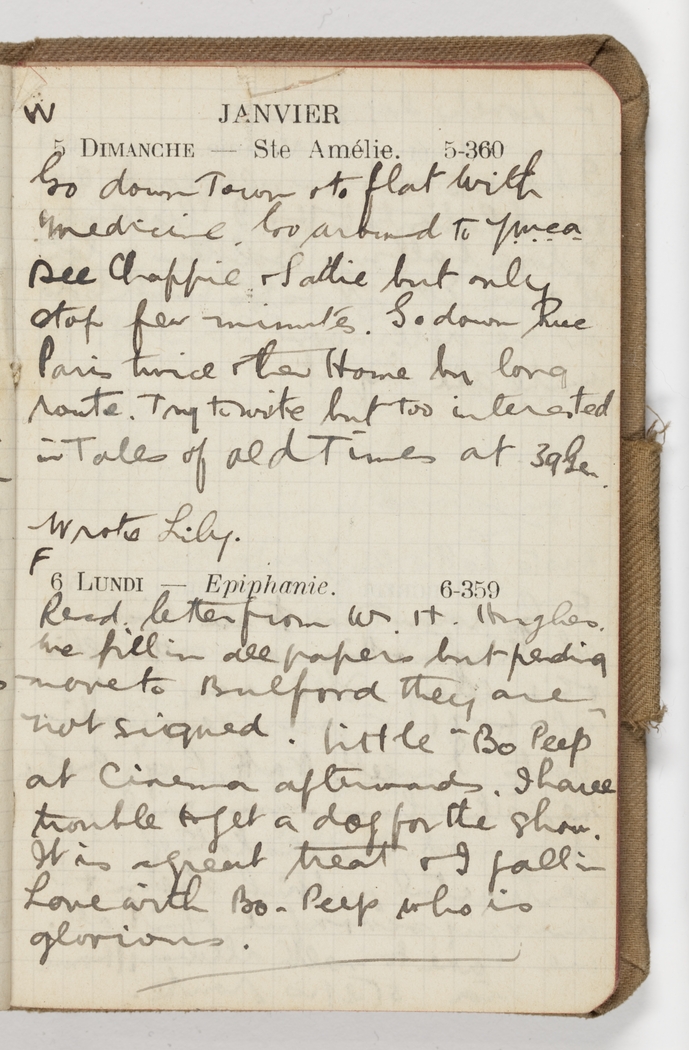 W
JANVIER
5 DIMANCHE — Ste Amélie. 5-360
Go down Town & to flat with
medicine. Go around to Ymca
see Chappie & Sadie but only
stop few minutes. Go down Rue
Paris twice & then Home by long
route. Try to write but too interested
in Tales of old Times at 39 Gen.
Wrote Lily.
F
6 LUNDI — Epiphanie. 6-359
Recd. letter from W. H. Hughes.
We fill in all papers but pending
move to Bulford they are
not signed. Little "Bo Peep
at Cinema afterwards. I have
trouble to get a dog for the show.
It is a great treat & I fall in
Love with Bo-Peep who is
glorious.